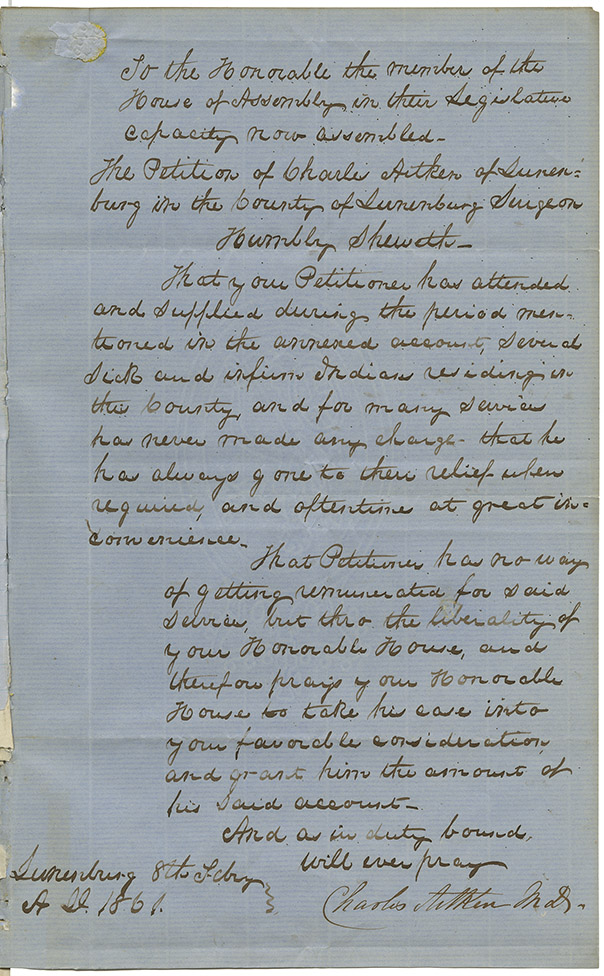 To the Honorable the member of the
House of Assembly, in their Legislative
capacity now assembled—
The Petition of Charles Aitken of Lunen=
burg in the County of Lunenburg Surgeon
Humbly Sheweth—
That your Petitioner has attended
and supplied during the period men-
tioned in the annexed account, several
Sick and infirm Indians residing in
this County, and for many services
has never made any charge- that he
has always gone to their relief when
required, and oftentimes at great in=
convenience.
That Petitioner has no way
of getting remunerated for said
service, but thro the liberality of
your Honorable House, and
therefore prays your Honorable
House to take his case into
your favorable consideration,
and grant him the amount of
his said account—
And as in duty bound,
will ever pray
Lunenburg 8th Feby
A D. 1861.
Charles Aitken M.D.